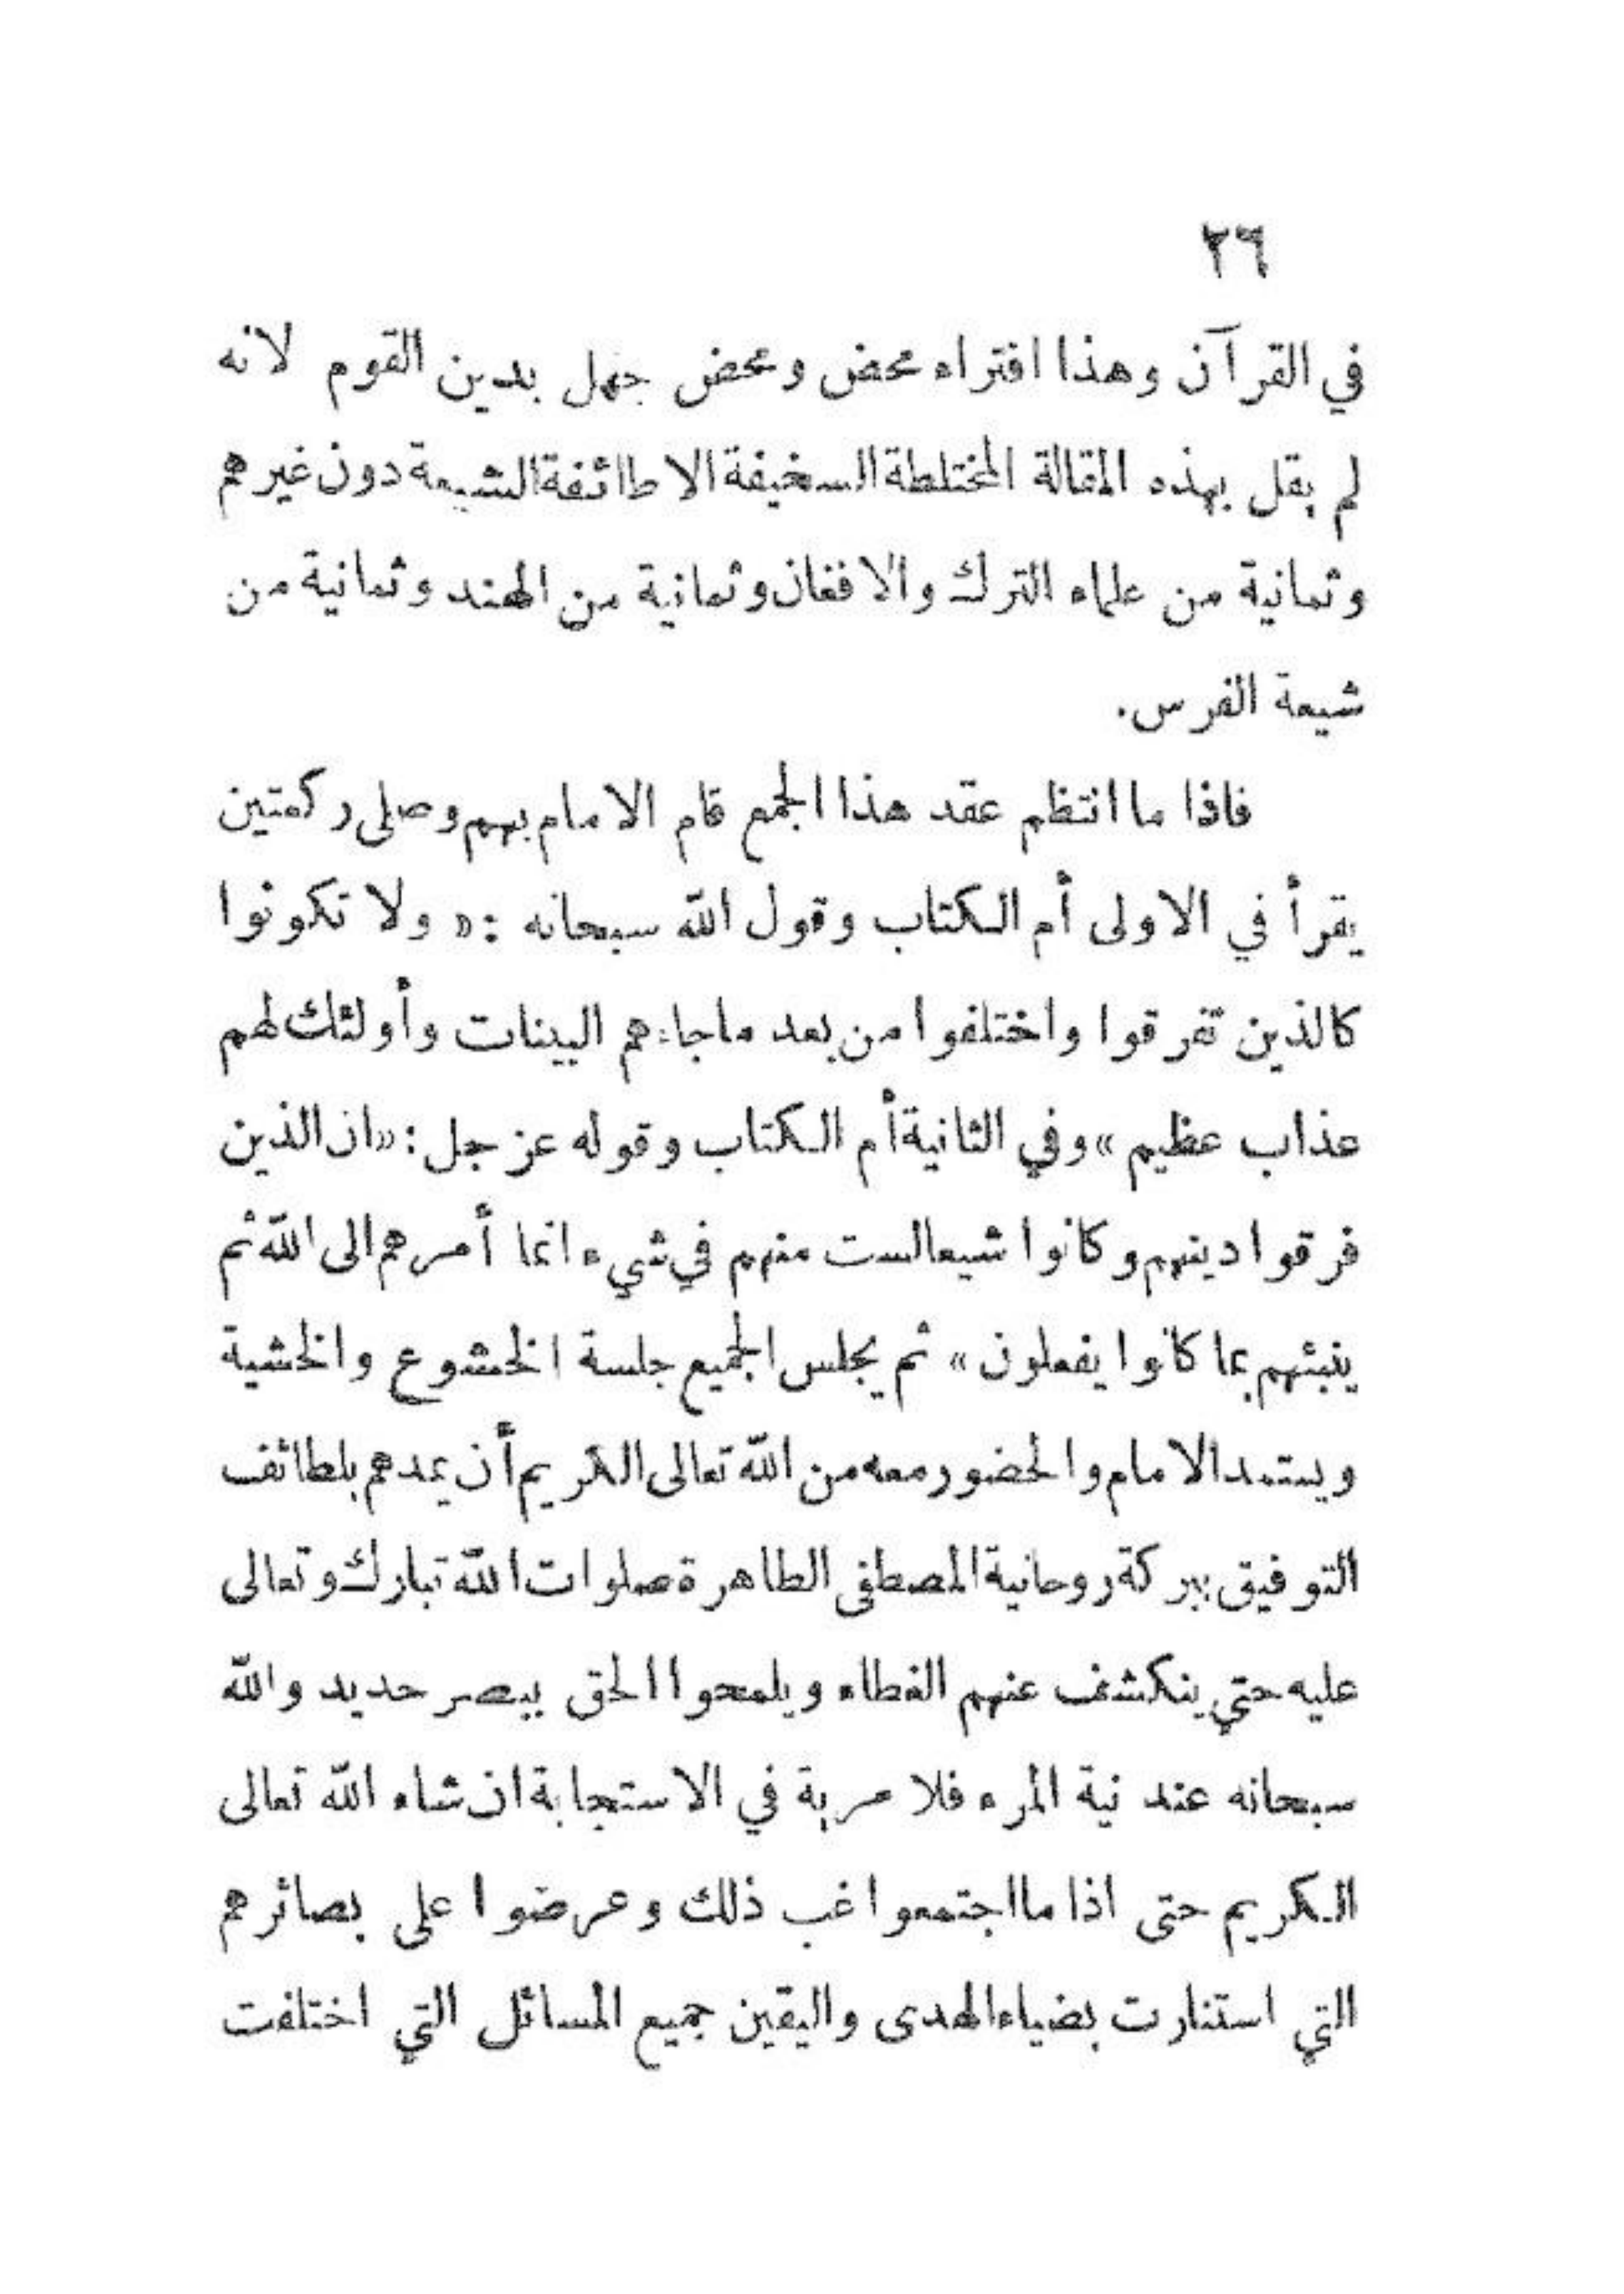 ٢٦
في القرآن وهذا افتراء محض ومحض جهل بدين القوم لانه
لم يقل بهذه المقالة المختلطة السخيفة الا طائفة الشيعة دون غيرهم
وثمانية من علماء الترك والافغان وثمانية من الهند وثمانية من
شيعة الفرس.
فاذا ما انتظم عقد هذا الجمع قام الامام بهم وصلى ركعتين
يقرأ في الاولى أم الكتاب وقول الله سبحانه : « ولا تكونوا
كالذين تفرقوا واختلفوا من بعد ماجاءهم البينات وأولئك لهم
عذاب عظيم » وفي الثانية أم الكتاب وقوله عز جل : «ان الذين
فرقوا دينهم وكانوا شيعا لست منهم في شيء انما أمرهم الى الله ثم
ينبئهم بما كانوا يفعلون » ثم يجلس الجميع جلسة الخشوع والخشية
ويستمد الامام والحضور معه من الله تعالى الكريم أن يمدهم بلطائف
التوفيق ببركة روحانية المصطفى الطاهرة صلوات الله تبارك وتعالى
عليه حتي ينكشف عنهم الغطاء ويلمحوا الحق ببصر حديد والله
سبحانه عند نية المرء فلا مرية في الاستجابة ان شاء الله تعالى
الكريم حتى اذا ما اجتمعوا غب ذلك وعرضوا على بصائرهم
التي استنارت بضياء الهدى واليقين جميع المسائل التي اختلفت